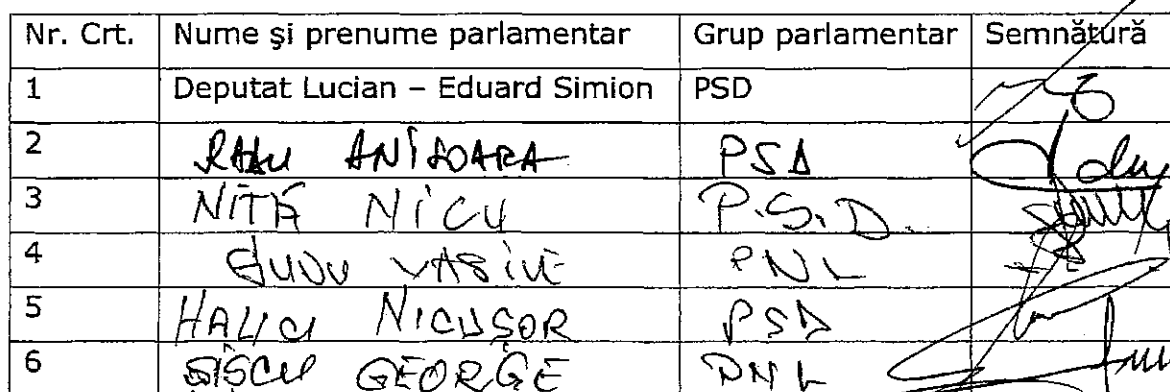 Nr. Crt. Nume şi prenume parlamentar Grup parlamentar Semnătură
1 Deputat Lucian – Eduard Simion PSD
2 RADU ANIŞOARA PSD
3 NIŢĂ NICU P.S.D.
4 GUDU VASILE PNL
5 HALICI NICUŞOR PSD
6 GÎSCĂ GEORGE PNL